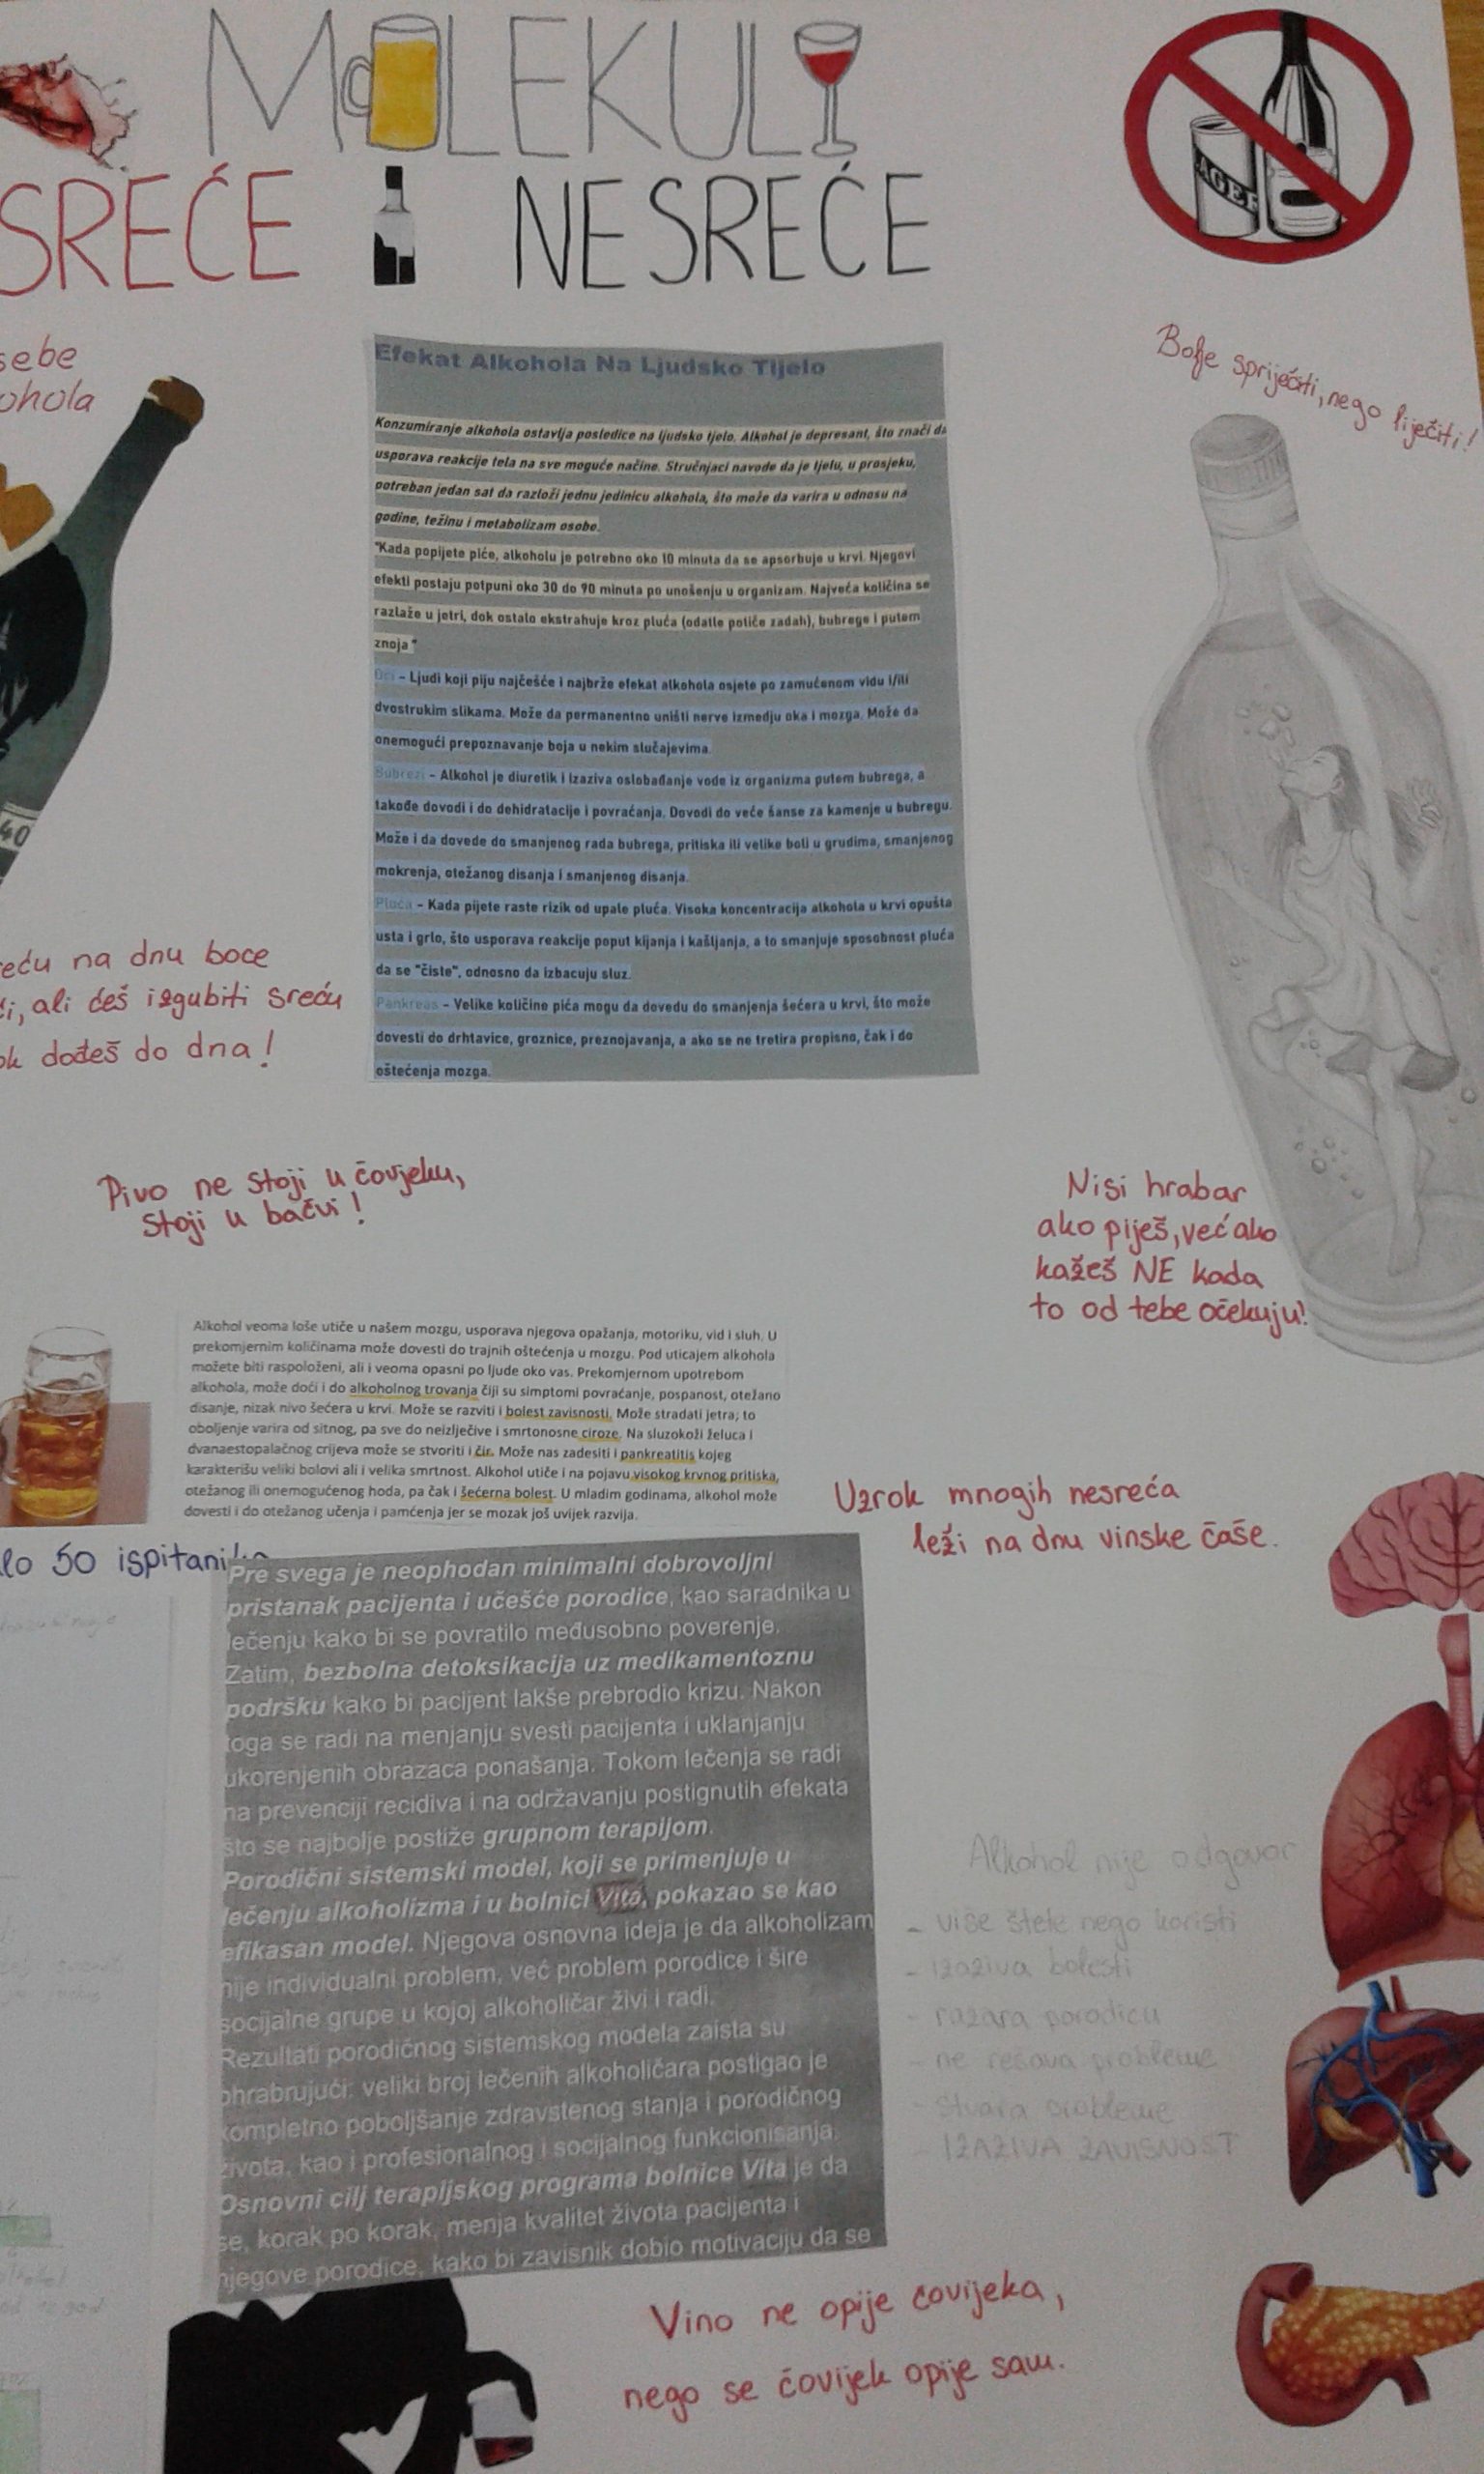 MOLEKULI
SREĆE I NESREĆE
LAGER
sebe
Bolje spriječiti, nego liječiti!
40
Efekat Alkohola Na Ljudsko Tijelo
Konzumiranje alkohola ostavlja posledice na ljudsko tjelo. Alkohol je depresant, što znači da
usporava reakcije tela na sve moguće načine. Stručnjaci navode da je tjelu, u prosjeku,
potreban jedan sat da razloži jednu jedinicu alkohola, što može da varira u odnosu na
godine, težinu i metabolizam osobe.
"Kada popijete piće, alkoholu je potrebno oko 10 minuta da se apsorbuje u krvi. Njegovi
efekti postaju potpuni oko 30 do 90 minuta po unošenju u organizam. Najveća količina se
razlaže u jetri, dok ostalo ekstrahuje kroz pluća (odatle potiče zadah), bubrege i putem
znoja "
Oči – Ljudi koji piju najčešće i najbrže efekat alkohola osjete po zamućenom vidu i/ili
dvostrukim slikama. Može da permanentno uništi nerve izmedju oka i mozga. Može da
onemogući prepoznavanje boja u nekim slučajevima.
Bubrezi – Alkohol je diuretik i izaziva oslobađanje vode iz organizma putem bubrega, a
takođe dovodi i do dehidratacije i povraćanja. Dovodi do veće šanse za kamenje u bubregu.
Može i da dovede do smanjenog rada bubrega, pritiska ili velike boli u grudima, smanjenog
mokrenja, otežanog disanja i smanjenog disanja.
Pluća – Kada pijete raste rizik od upale pluća. Visoka koncentracija alkohola u krvi opušta
usta i grlo, što usporava reakcije poput kijanja i kašljanja, a to smanjuje sposobnost pluća
da se "čiste", odnosno da izbacuju sluz.
Pankreas – Velike količine pića mogu da dovedu do smanjenja šećera u krvi, što može
dovesti do drhtavice, groznice, preznojavanja, a ako se ne tretira propisno, čak i do
oštećenja mozga.
na dnu boce
ali ćeš izgubiti sreću
dođeš do dna!
Pivo ne stoji u čovjeku,
stoji u bačvi!
Nisi hrabar
ako piješ, već ako
kažeš NE kada
to od tebe očekuju!
Alkohol veoma loše utiče u našem mozgu, usporava njegova opažanja, motoriku, vid i sluh. U
prekomjernim količinama može dovesti do trajnih oštećenja u mozgu. Pod uticajem alkohola
možete biti raspoloženi, ali i veoma opasni po ljude oko vas. Prekomjernom upotrebom
alkohola, može doći i do alkoholnog trovanja čiji su simptomi povraćanje, pospanost, otežano
disanje, nizak nivo šećera u krvi. Može se razviti i bolest zavisnosti. Može stradati jetra; to
oboljenje varira od sitnog, pa sve do neizlječive i smrtonosne ciroze. Na sluzokoži želuca i
dvanaestopalačnog crijeva može se stvoriti i čir. Može nas zadesiti i pankreatitis kojeg
karakterišu veliki bolovi ali i velika smrtnost. Alkohol utiče i na pojavu visokog krvnog pritiska,
otežanog ili onemogućenog hoda, pa čak i šećerna bolest. U mladim godinama, alkohol može
dovesti i do otežanog učenja i pamćenja jer se mozak još uvijek razvija.
Uzrok mnogih nesreća
leži na dnu vinske čaše.
50
Pre svega je neophodan minimalni dobrovoljni
pristanak pacijenta i učešće porodice, kao saradnika u
lečenju kako bi se povratilo međusobno poverenje.
Zatim, bezbolna detoksikacija uz medikamentoznu
podršku kako bi pacijent lakše prebrodio krizu. Nakon
toga se radi na menjanju svesti pacijenta i uklanjanju
ukorenjenih obrazaca ponašanja. Tokom lečenja se radi
na prevenciji recidiva i na održavanju postignutih efekata
što se najbolje postiže grupnom terapijom.
Porodični sistemski model, koji se primenjuje u
lečenju alkoholizma i u bolnici Vita, pokazao se kao
efikasan model. Njegova osnovna ideja je da alkoholizam
nije individualni problem, već problem porodice i šire
socijalne grupe u kojoj alkoholičar živi i radi.
Rezultati porodičnog sistemskog modela zaista su
ohrabrujući: veliki broj lečenih alkoholičara postigao je
kompletno poboljšanje zdravstenog stanja i porodičnog
života, kao i profesionalnog i socijalnog funkcionisanja.
Osnovni cilj terapijskog programa bolnice Vita je da
se, korak po korak, menja kvalitet života pacijenta i
njegove porodice, kako bi zavisnik dobio motivaciju da se
Alkohol nije odgovor
- više štete nego koristi
- izaziva bolesti
- razara porodicu
- ne rešava probleme
- stvara probleme
IZAZIVA ZAVISNOST
Vino ne opije čovijeka,
nego se čovijek opije sam.